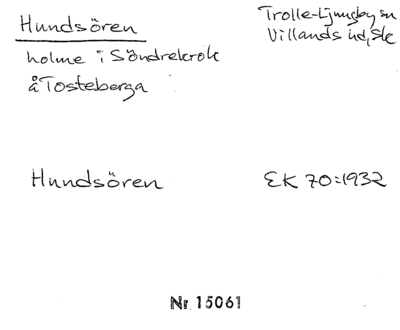 Hundsören
Trolle-Ljungby sn
Villands hd, Sk
holme i Söndrekrok
å Tosteberga
Hundsören
EK 70:1932
Nr 15061